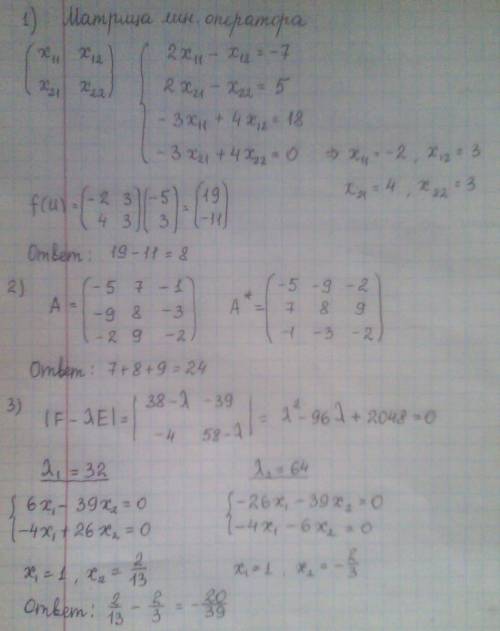 1) Матрица лин. оператора
(x₁₁ x₁₂
x₂₁ x₂₂)
{ 2x₁₁ − x₁₂ = −7
2x₂₁ − x₂₂ = 5
−3x₁₁ + 4x₁₂ = 18
−3x₂₁ + 4x₂₂ = 0 ⇒ x₁₁ = −2, x₁₂ = 3
x₂₁ = 4, x₂₂ = 3
f(u) = (−2 3; 4 3)(−5; 3) = (19; −11)
Ответ: 19 − 11 = 8
2) A = (−5 7 −1; −9 8 −3; −2 9 −2) A* = (−5 −9 −2; 7 8 9; −1 −3 −2)
Ответ: 7 + 8 + 9 = 24
3) |F − λE| = |38−λ −39; −4 58−λ| = λ² − 96λ + 2048 = 0
λ₁ = 32 λ₂ = 64
{ 6x₁ − 39x₂ = 0 { −26x₁ − 39x₂ = 0
−4x₁ + 26x₂ = 0 −4x₁ − 6x₂ = 0
x₁ = 1, x₂ = 2/13 x₁ = 1, x₂ = −2/3
Ответ: 2/13 − 2/3 = −20/39